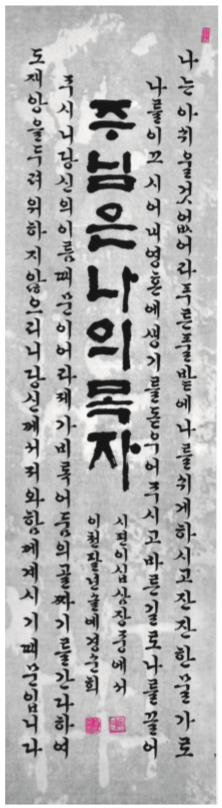 나는 아쉬울 것 없어라 푸른 풀밭에 나를 쉬게 하시고 잔잔한 물가로
나를 이끄시어 내 영혼에 생기를 돋우어 주시고 바른 길로 나를 끌어
주님은 나의 목자
주시니 당신의 이름 때문이어라 제가 비록 어둠의 골짜기를 간다 하여
도 재앙을 두려워하지 않으리니 당신께서 저와 함께 계시기 때문입니다
시편 이십삼장 중에서
이천 년 봄에 정순희